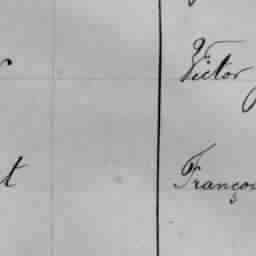 Victor
t
Françoi